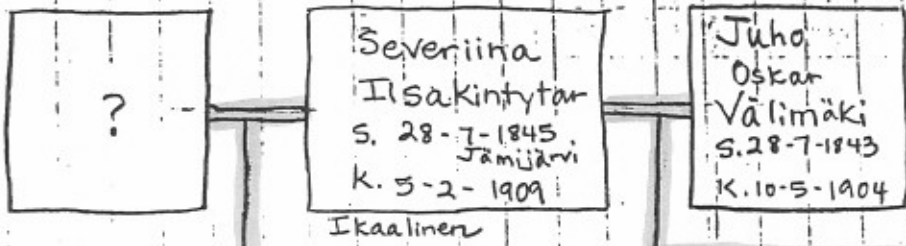 ?
Severiina
Ilsakintytar
S. 28-7-1845
Jämijärvi
K. 5-2-1909
Ikaalinen
Juho
Oskar
Välimäki
S. 28-7-1843
K. 10-5-1904